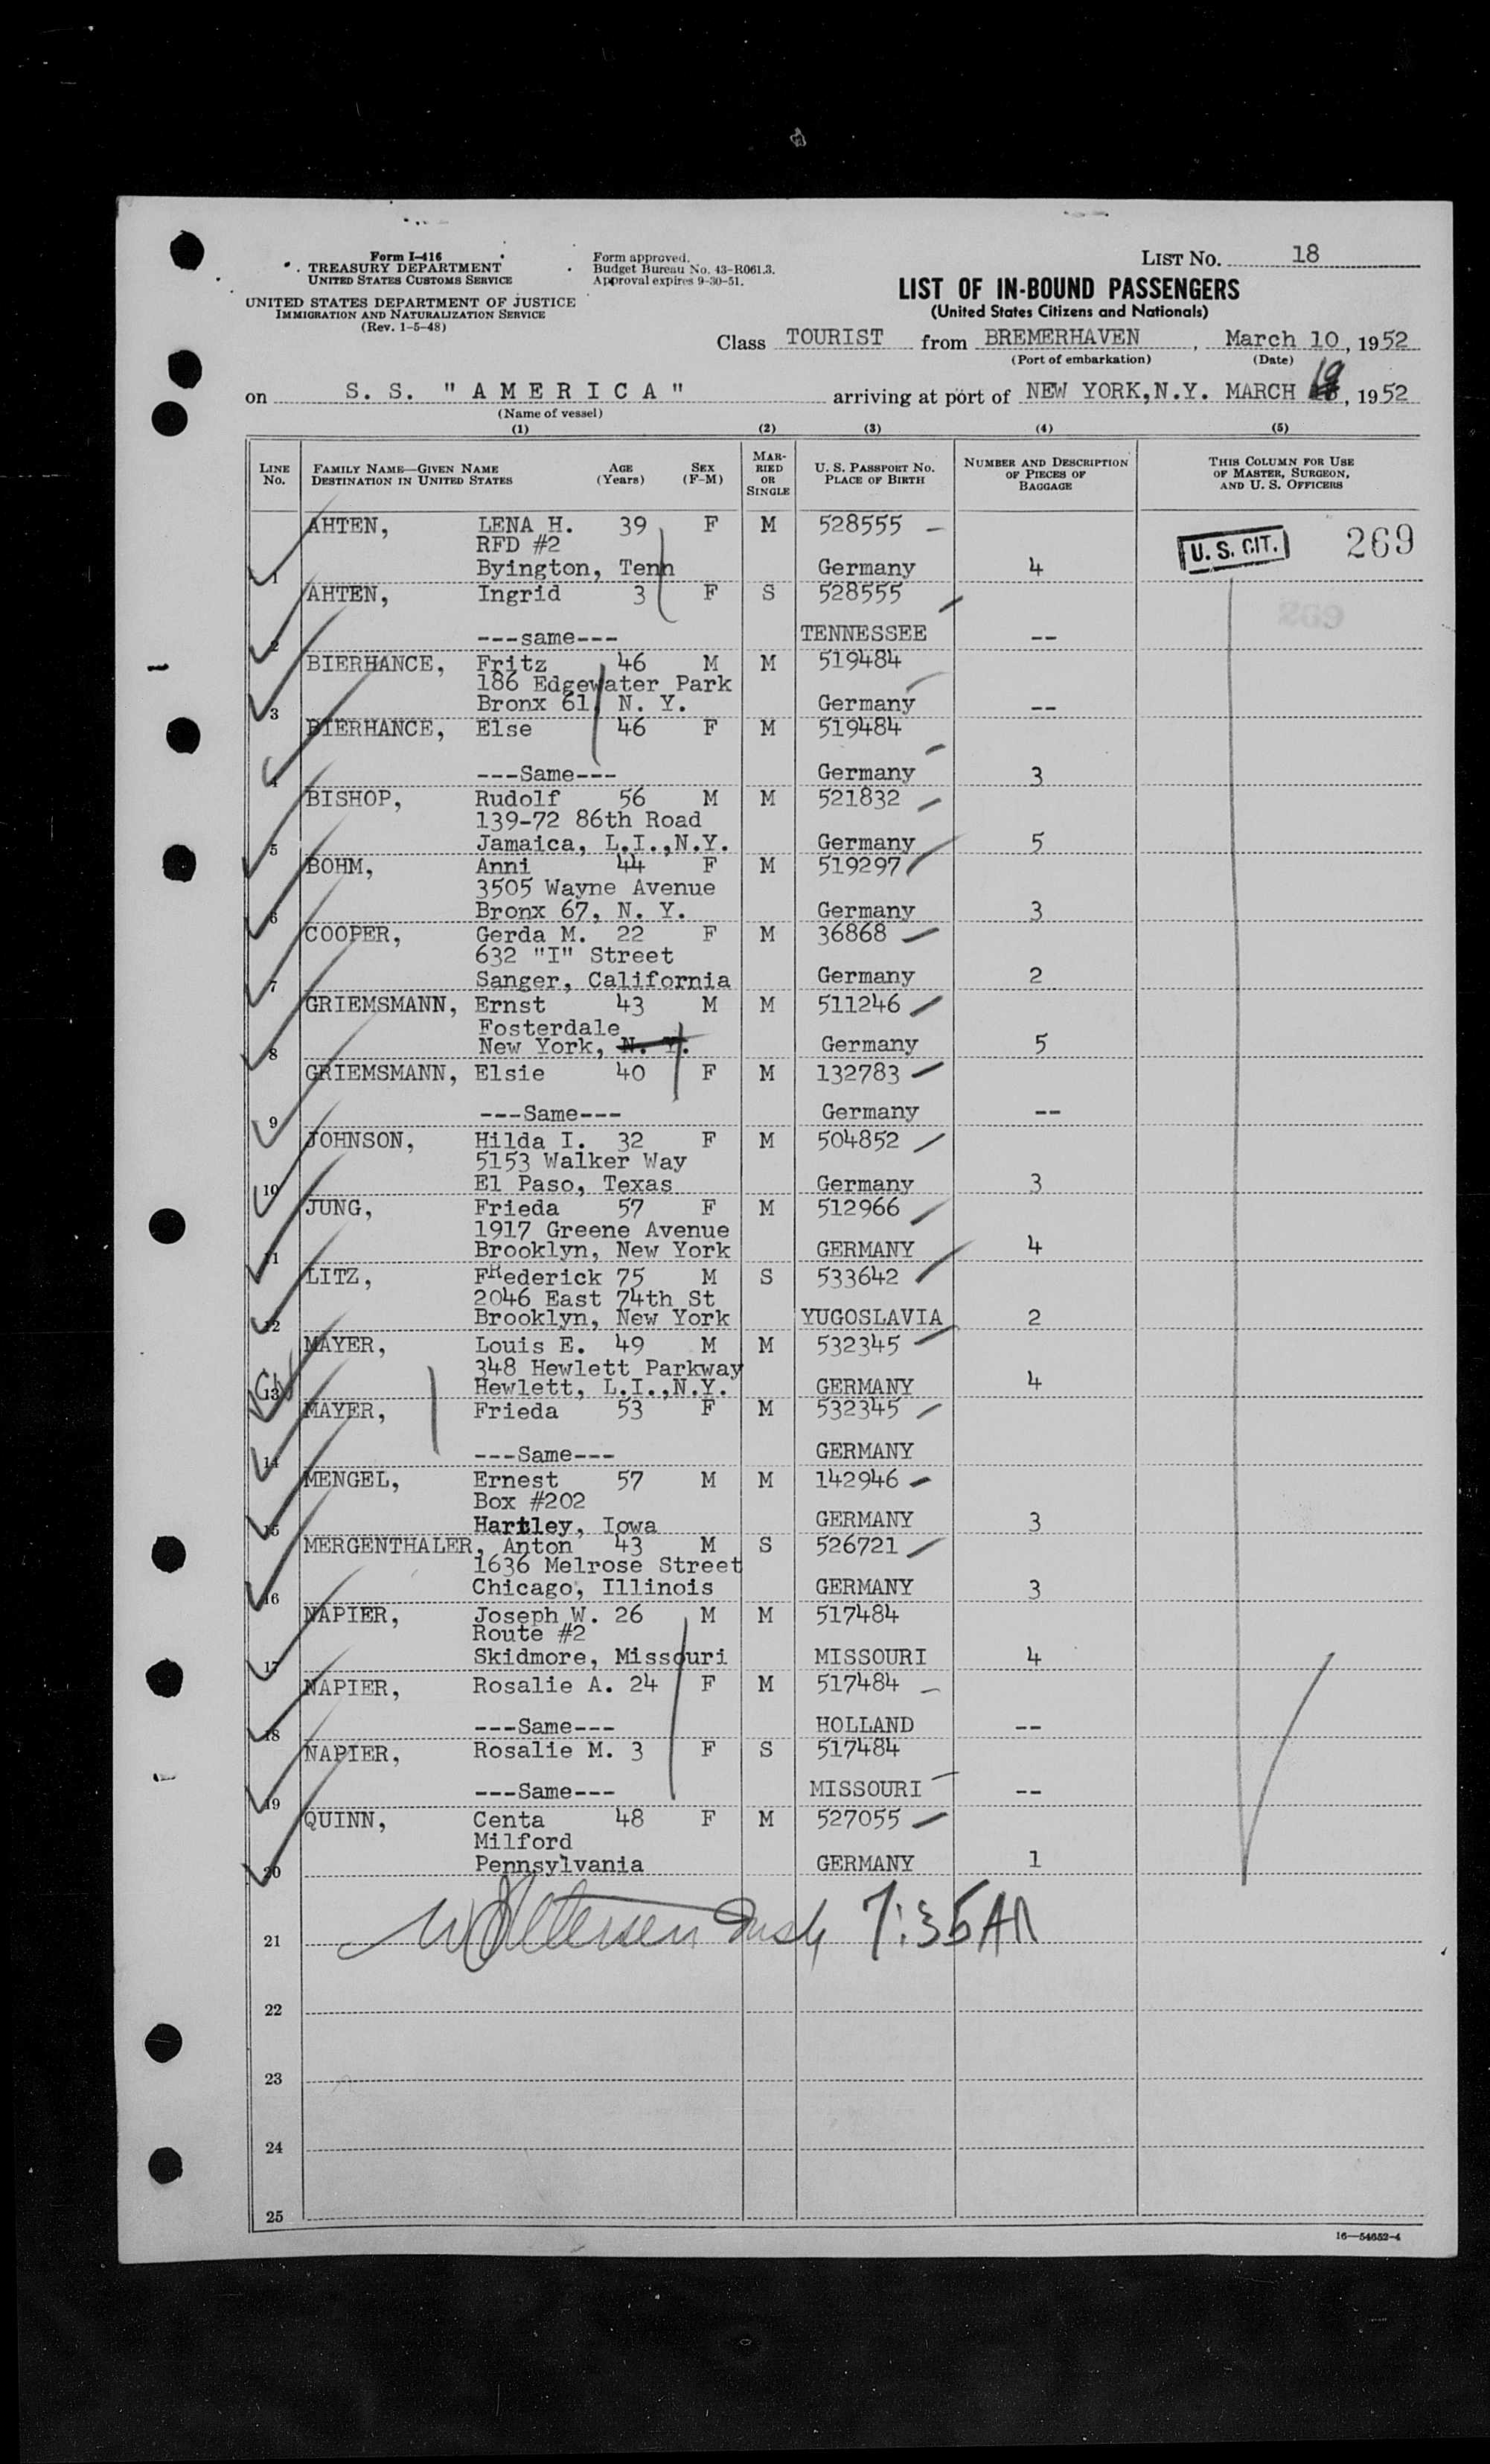 Form I-416
TREASURY DEPARTMENT
UNITED STATES CUSTOMS SERVICE
UNITED STATES DEPARTMENT OF JUSTICE
IMMIGRATION AND NATURALIZATION SERVICE
(Rev. 1-5-48)
Form approved.
Budget Bureau No. 43-R061.3.
Approval expires 9-30-51.
LIST No. 18
LIST OF IN-BOUND PASSENGERS
(United States Citizens and Nationals)
Class TOURIST from BREMERHAVEN, March 10, 1952
(Port of embarkation) (Date)
on S. S. "AMERICA" arriving at port of NEW YORK,N.Y. MARCH 19, 1952
(Name of vessel)
(1) (2) (3) (4) (5)
LINE No. FAMILY NAME—GIVEN NAME DESTINATION IN UNITED STATES AGE (Years) SEX (F-M) MARRIED OR SINGLE U. S. PASSPORT No. PLACE OF BIRTH NUMBER AND DESCRIPTION OF PIECES OF BAGGAGE THIS COLUMN FOR USE OF MASTER, SURGEON, AND U. S. OFFICERS
AHTEN, LENA H. 39 F M 528555
RFD #2 U. S. CIT. 269
1 Byington, Tenn Germany 4
AHTEN, Ingrid 3 F S 528555
2 ---same--- TENNESSEE --
BIERHANCE, Fritz 46 M M 519484
186 Edgewater Park
3 Bronx 61, N. Y. Germany --
BIERHANCE, Else 46 F M 519484
4 ---Same--- Germany 3
BISHOP, Rudolf 56 M M 521832
139-72 86th Road
5 Jamaica, L.I.,N.Y. Germany 5
BOHM, Anni 44 F M 519297
3505 Wayne Avenue
6 Bronx 67, N. Y. Germany 3
COOPER, Gerda M. 22 F M 36868
632 "I" Street
7 Sanger, California Germany 2
GRIEMSMANN, Ernst 43 M M 511246
Fosterdale
8 New York, N. Y. Germany 5
GRIEMSMANN, Elsie 40 F M 132783
9 ---Same--- Germany --
JOHNSON, Hilda I. 32 F M 504852
5153 Walker Way
10 El Paso, Texas Germany 3
JUNG, Frieda 57 F M 512966
1917 Greene Avenue
11 Brooklyn, New York GERMANY 4
LITZ, FRederick 75 M S 533642
2046 East 74th St
12 Brooklyn, New York YUGOSLAVIA 2
MAYER, Louis E. 49 M M 532345
348 Hewlett Parkway
13 Hewlett, L.I.,N.Y. GERMANY 4
MAYER, Frieda 53 F M 532345
14 ---Same--- GERMANY
MENGEL, Ernest 57 M M 142946
Box #202
15 Hartley, Iowa GERMANY 3
MERGENTHALER, Anton 43 M S 526721
1636 Melrose Street
16 Chicago, Illinois GERMANY 3
NAPIER, Joseph W. 26 M M 517484
Route #2
17 Skidmore, Missouri MISSOURI 4
NAPIER, Rosalie A. 24 F M 517484
18 ---Same--- HOLLAND --
NAPIER, Rosalie M. 3 F S 517484
19 ---Same--- MISSOURI --
QUINN, Centa 48 F M 527055
Milford
20 Pennsylvania GERMANY 1
21 7:35AM
22
23
24
25
16—54652-4